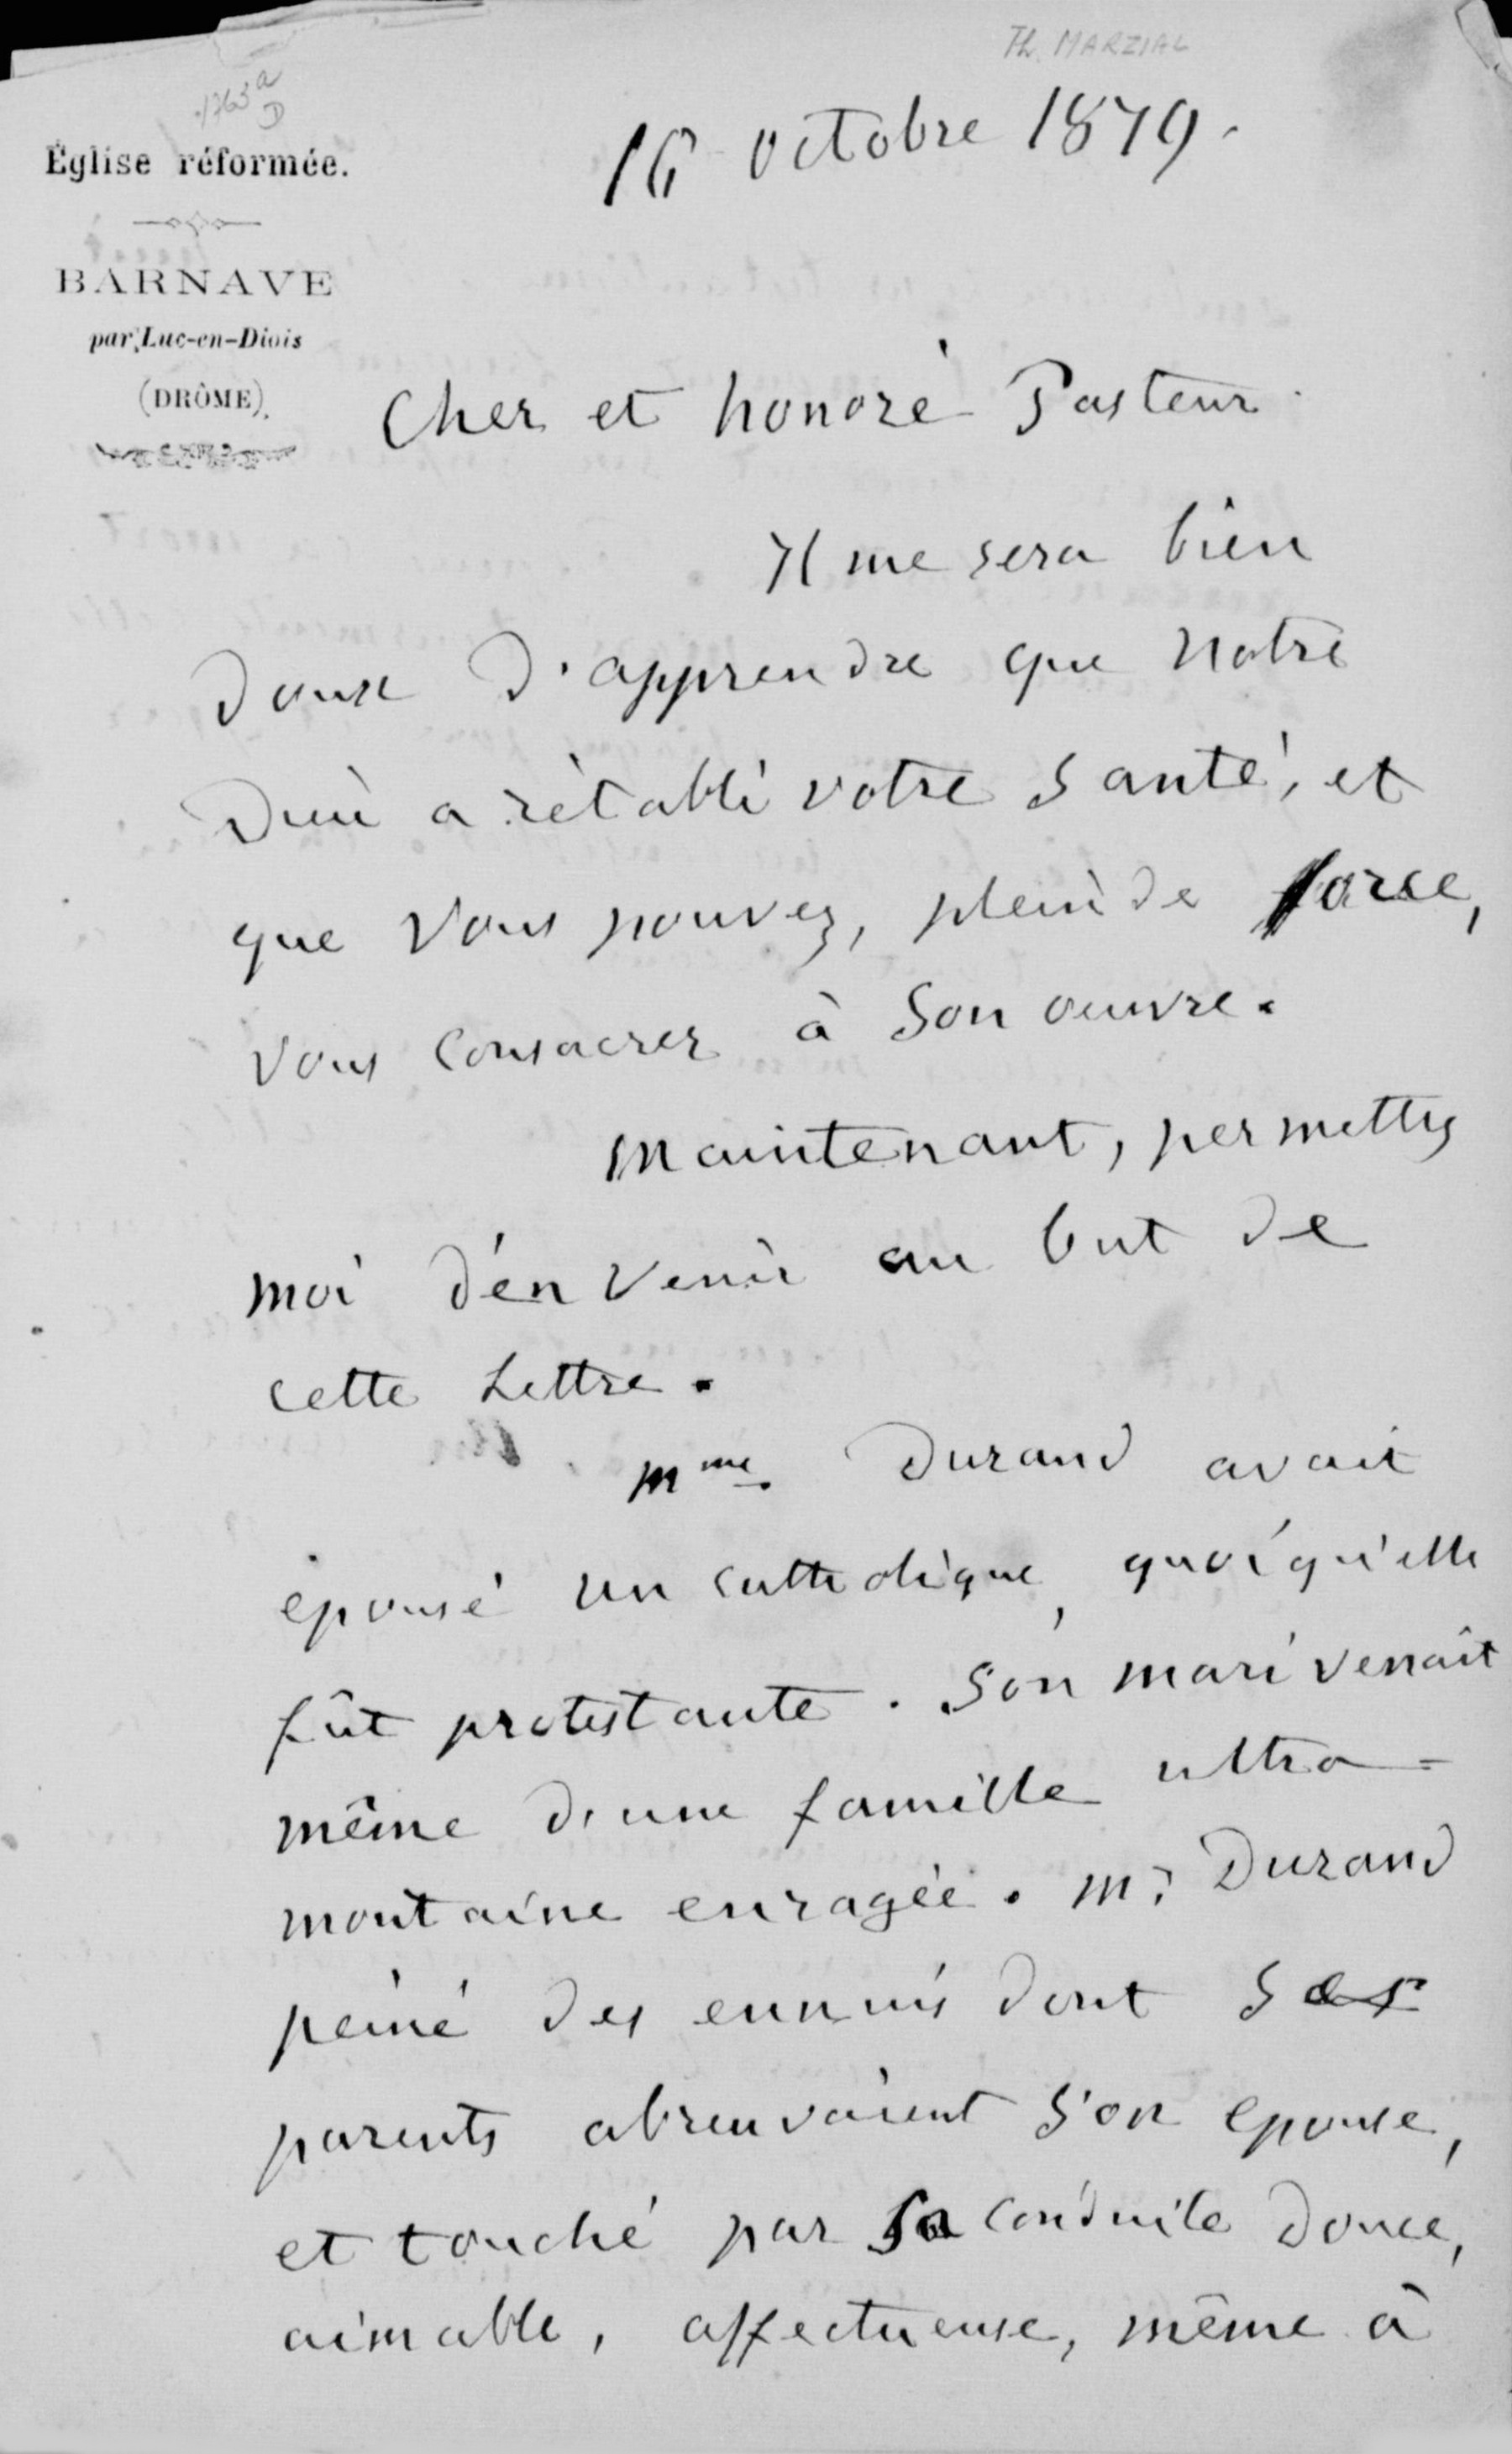 Th. MARZIAL
1763 a
D
Église réformée.
BARNAVE
par Luc-en-Diois
(DRÔME)
16 octobre 1879.
Cher et honoré Pasteur
Il me sera bien
doux d'apprendre que notre
Dieu a rétabli votre santé, et
que vous pouvez, plein de force,
vous consacrer à son œuvre.
Maintenant, permettez
moi d'en venir au but de
cette lettre.
Mme. Durand avait
épousé un catholique, quoiqu'elle
fût protestante. Son mari venait
même d'une famille ultra=
montaine enragée. Mr Durand
peiné des ennuis dont ses
parents abreuvaient son epouse,
et touché par sa conduite douce,
aimable, affectueuse, même à